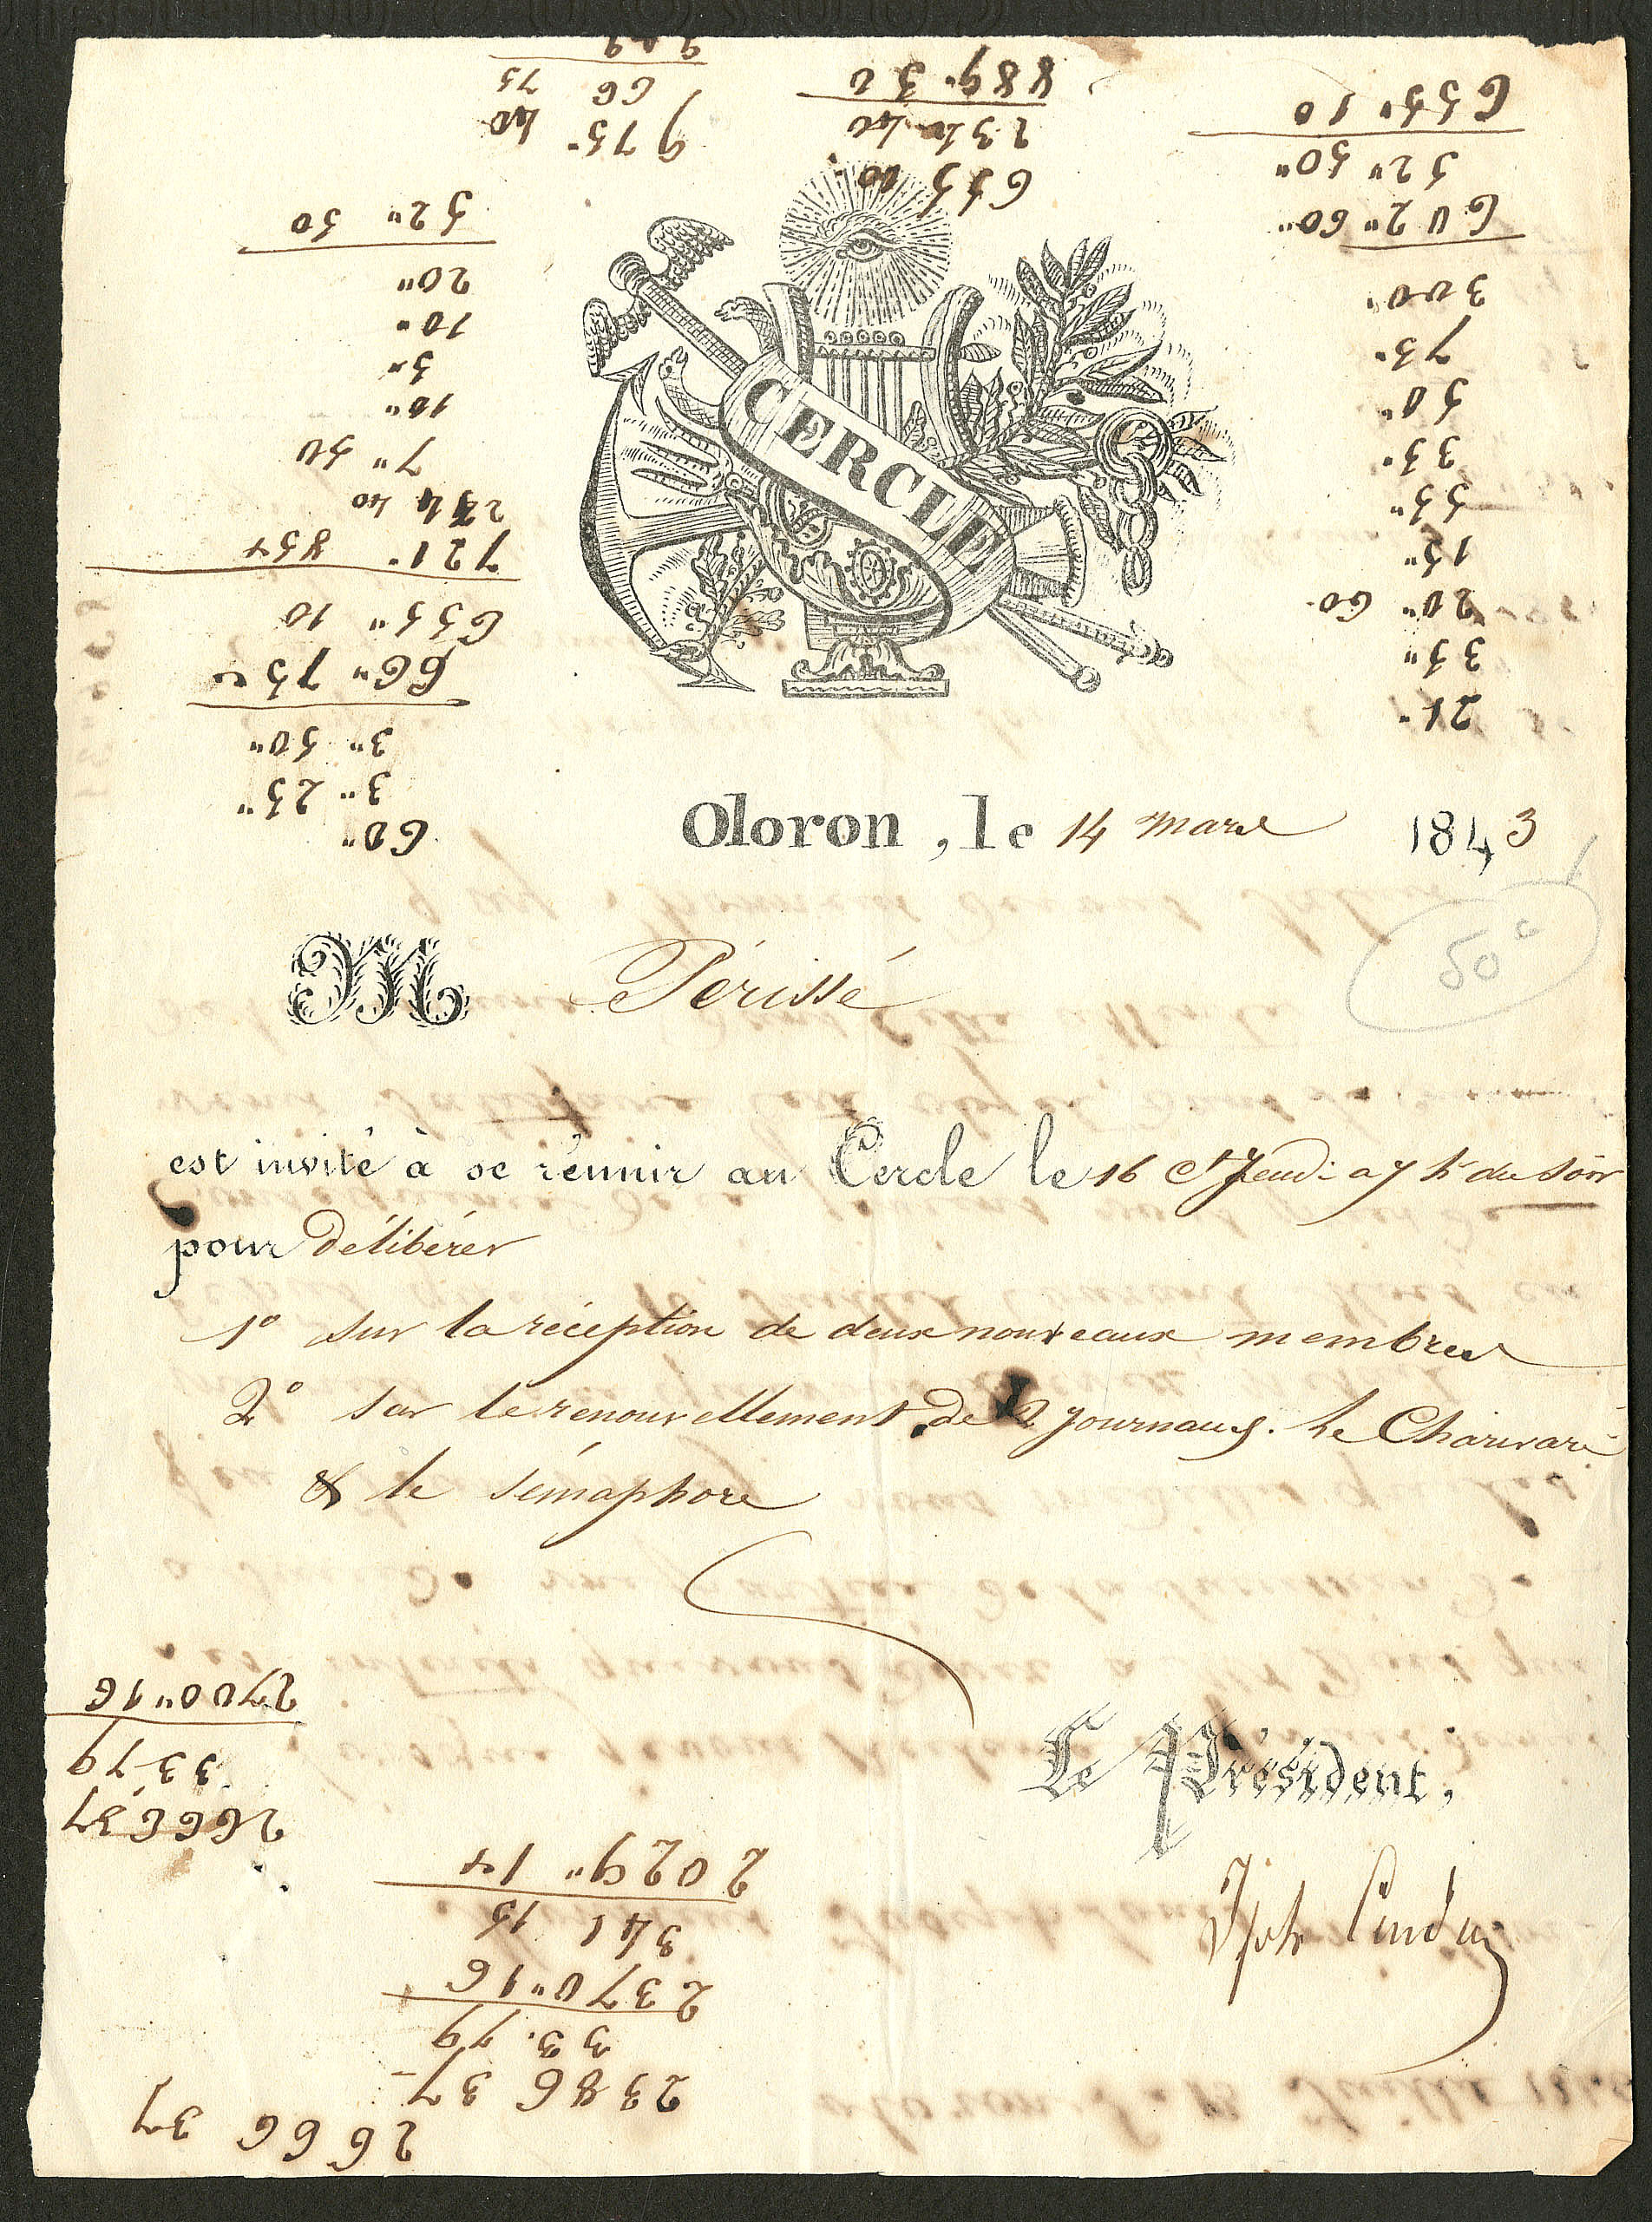 CERCLE
Oloron, le 14 mars 1843
M Périssé
50 c
est invité à se réunir au Cercle le 16 ct Jeudi a 7 hr du soir
pour délibérer
1° sur la réception de deux nouveaux membres
2° sur le renouvellement de 2 journaux. Le Charivari
& le sémaphore
Le Président,
2666 37
2386 37
33. 79
2370" 16
341 15
2029"
2666 37
33 79
2700" 16
60"
3" 25"
3" 50"
66" 75
655" 10
721"
7" 50
10"
5"
10"
20"
52" 50
21"
35"
20" 60
15"
55"
35"
50"
75"
300"
602" 60"
52" 50"
655" 10
655 10
234 40
889" 50
975" 40
66 75